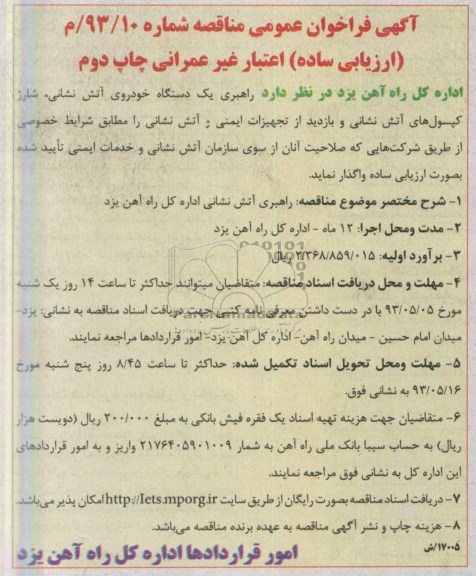 آگهی فراخوان عمومی مناقصه شماره ۹۳/۱۰/م
(ارزیابی ساده) اعتبار غیر عمرانی چاپ دوم
اداره کل راه آهن یزد در نظر دارد راهبری یک دستگاه خودروی آتش نشانی، شارژ
کپسول‌های آتش نشانی و بازدید از تجهیزات ایمنی و آتش نشانی را مطابق شرایط خصوصی
از طریق شرکت‌هایی که صلاحیت آنان از سوی سازمان آتش نشانی و خدمات ایمنی تأیید شده
بصورت ارزیابی ساده واگذار نماید.
۱- شرح مختصر موضوع مناقصه: راهبری آتش نشانی اداره کل راه آهن یزد
۲- مدت ومحل اجرا: ۱۲ ماه - اداره کل راه آهن یزد
۳- برآورد اولیه: ۲/۳۶۸/۸۵۹/۰۱۵ ریال
۴- مهلت و محل دریافت اسناد مناقصه: متقاضیان میتوانند حداکثر تا ساعت ۱۴ روز یک شنبه
مورخ ۹۳/۰۵/۰۵ با در دست داشتن معرفی نامه کتبی جهت دریافت اسناد مناقصه به نشانی: یزد-
میدان امام حسین - میدان راه آهن- اداره کل راه آهن یزد- امور قراردادها مراجعه نمایند.
۵- مهلت ومحل تحویل اسناد تکمیل شده: حداکثر تا ساعت ۸/۴۵ روز پنج شنبه مورخ
۹۳/۰۵/۱۶ به نشانی فوق.
۶- متقاضیان جهت هزینه تهیه اسناد یک فقره فیش بانکی به مبلغ ۲۰۰/۰۰۰ ریال (دویست هزار
ریال) به حساب سیبا بانک ملی راه آهن به شمار ۲۱۷۶۴۰۵۹۰۱۰۰۹ واریز و به امور قراردادهای
این اداره کل به نشانی فوق مراجعه نمایند.
۷- دریافت اسناد مناقصه بصورت رایگان از طریق سایت http://Iets.mporg.ir امکان پذیر می‌باشد.
۸- هزینه چاپ و نشر آگهی مناقصه به عهده برنده مناقصه می‌باشد.
۱۷۰۰۵/ش
امور قراردادها اداره کل راه آهن یزد